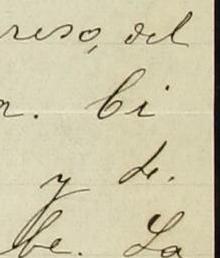 reso, del
n. Ci
y de.
be. La